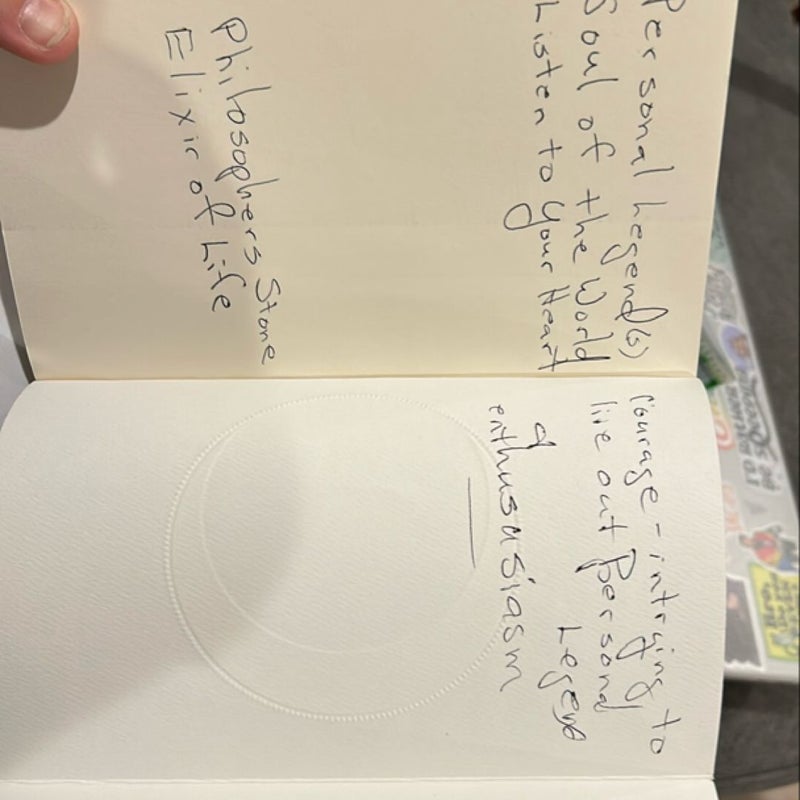 Personal Legend(s)
Soul of the World
Listen to your Heart
Philosophers Stone
Elixir of Life
Courage - in trying to
live out personal
Legend
&
enthusasiasm